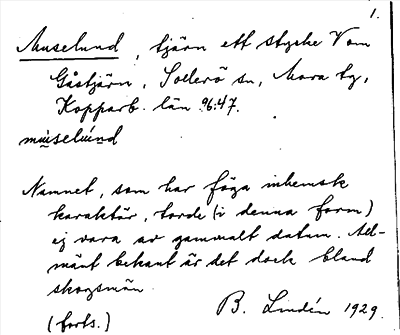 1.
Muselund, tjärn ett stycke V om
Gåstjärn, Sollerö sn, Mora tg,
Kopparb. län. 96:47.
mùselùnd
Namnet, som har föga inhemsk
karaktär, torde (i denna form)
ej vara av gammalt datum. All-
mänt bekant är det dock bland
skogsmän.
(forts.) B. Lindén 1929.